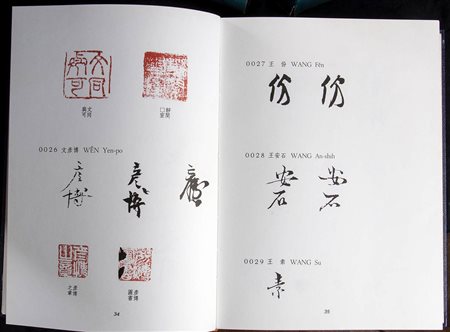 文同
與可
靜閒
□室
0026 文彥博 WÊN Yen-po
彥博
彥博
彥博
之章
彥博
圖書
34
0027 王 份 WANG Fên
份 份
0028 王安石 WANG An-shih
安石 安石
0029 王 素 WANG Su
素
35